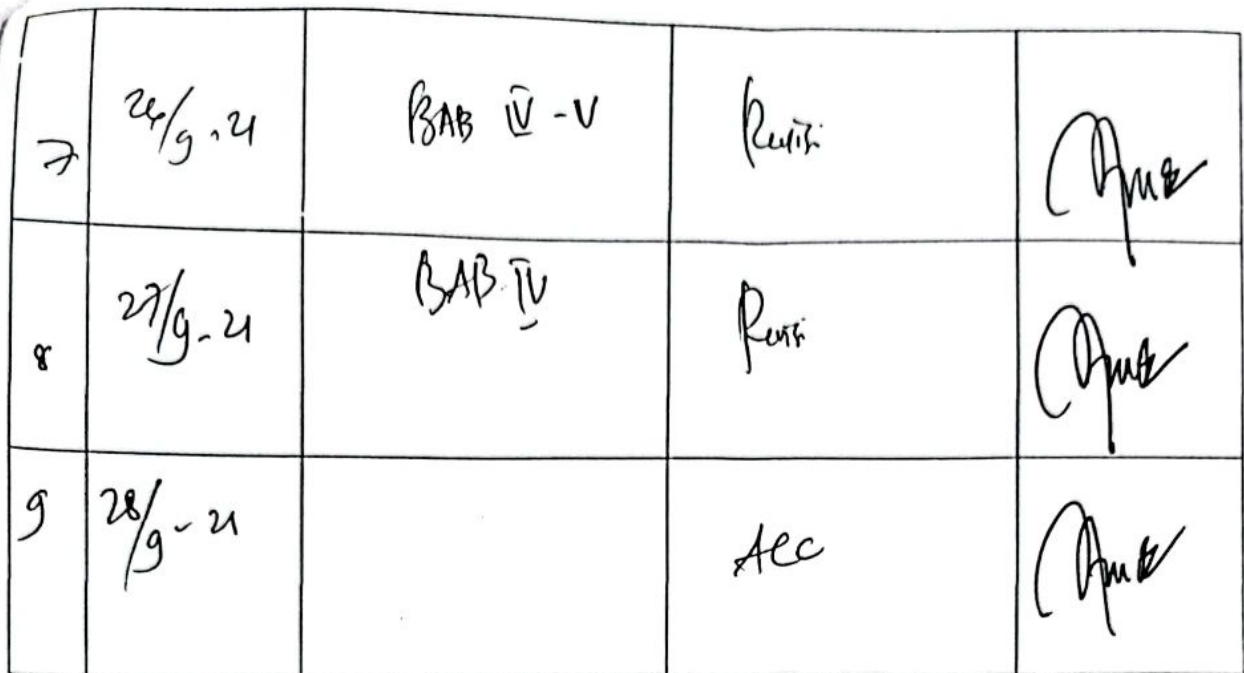 7 24/9-21 BAB IV - V Revisi
8 27/9-21 BAB IV Revisi
9 28/9-21 ACC